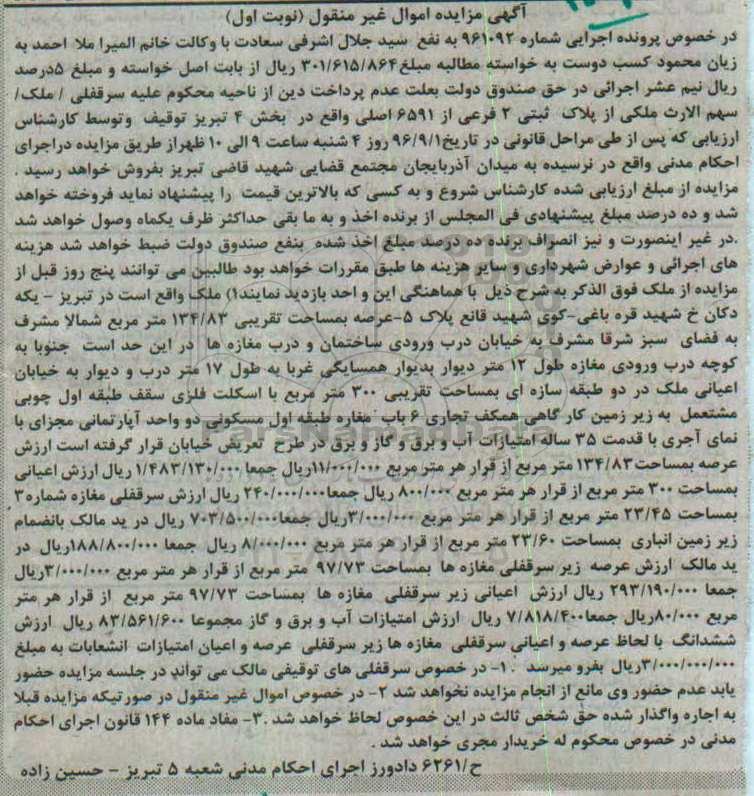 آگهی مزایده اموال غیر منقول (نوبت اول)
در خصوص پرونده اجرایی شماره ۹۶۱۰۹۲ به نفع سید جلال اشرفی سعادت با وکالت خانم المیرا ملا احمد به
زیان محمود کسب دوست به خواسته مطالبه مبلغ ۳۰۱/۶۱۵/۸۶۴ ریال از بابت اصل خواسته و مبلغ ۵درصد
ریال نیم عشر اجرائی در حق صندوق دولت بعلت عدم پرداخت دین از ناحیه محکوم علیه سرقفلی / ملک/
سهم الارث ملکی از پلاک ثبتی ۲ فرعی از ۶۵۹۱ اصلی واقع در بخش ۴ تبریز توقیف وتوسط کارشناس
ارزیابی که پس از طی مراحل قانونی در تاریخ۹۶/۹/۱ روز ۴ شنبه ساعت ۹ الی ۱۰ ظهراز طریق مزایده دراجرای
احکام مدنی واقع در نرسیده به میدان آذربایجان مجتمع قضایی شهید قاضی تبریز بفروش خواهد رسید .
مزایده از مبلغ ارزیابی شده کارشناس شروع و به کسی که بالاترین قیمت را پیشنهاد نماید فروخته خواهد
شد و ده درصد مبلغ پیشنهادی فی المجلس از برنده اخذ و به ما بقی حداکثر ظرف یکماه وصول خواهد شد
.در غیر اینصورت و نیز انصراف برنده ده درصد مبلغ اخذ شده بنفع صندوق دولت ضبط خواهد شد هزینه
های اجرائی و عوارض شهرداری و سایر هزینه ها طبق مقررات خواهد بود طالبین می توانند پنج روز قبل از
مزایده از ملک فوق الذکر به شرح ذیل با هماهنگی این و احد بازدید نمایند۱) ملک واقع است در تبریز - یکه
دکان خ شهید قره باغی-کوی شهید قانع پلاک ۵-عرصه بمساحت تقریبی ۱۳۴/۸۳ متر مربع شمالا مشرف
به فضای سبز شرقا مشرف به خیابان درب ورودی ساختمان و درب مغازه ها در این حد است جنوبا به
کوچه درب ورودی مغازه طول ۱۲ متر دیوار بدیوار همسایگی غربا به طول ۱۷ متر درب و دیوار به خیابان
اعیانی ملک در دو طبقه سازه ای بمساحت تقریبی ۳۰۰ متر مربع با اسکلت فلزی سقف طبقه اول چوبی
مشتمعل به زیر زمین کار گاهی همکف تجاری ۶ باب مغازه طبقه اول مسکونی دو واحد آپارتمانی مجزای با
نمای آجری با قدمت ۳۵ ساله امتیازات آب و برق و گاز و برق در طرح تعریض خیابان قرار گرفته است ارزش
عرصه بمساحت۱۳۴/۸۳ متر مربع از قرار هر متر مربع ۱۱/۰۰۰/۰۰۰ریال جمعا ۱/۴۸۳/۱۳۰/۰۰۰ ریال ارزش اعیانی
بمساحت ۳۰۰ متر مربع از قرار هر متر مربع ۸۰۰/۰۰۰ ریال جمعا۲۴۰/۰۰۰/۰۰۰ ریال ارزش سرقفلی مغازه شماره۳
بمساحت ۲۳/۴۵ متر مربع از قرار هر متر مربع ۳/۰۰۰/۰۰۰ریال جمعا۷۰۳/۵۰۰/۰۰۰ ریال در ید مالک بانضمام
زیر زمین انباری بمساحت ۲۳/۶۰ متر مربع از قرار هر متر مربع ۸/۰۰۰/۰۰۰ ریال جمعا ۱۸۸/۸۰۰/۰۰۰ریال در
ید مالک ارزش عرصه زیر سرقفلی مغازه ها بمساحت ۹۷/۷۳ متر مربع از قرار هر متر مربع ۳/۰۰۰/۰۰۰ریال
جمعا ۲۹۳/۱۹۰/۰۰۰ ریال ارزش اعیانی زیر سرقفلی مغازه ها بمساحت ۹۷/۷۳ متر مربع از قرار هر متر
مربع ۸۰/۰۰۰ریال جمعا۷/۸۱۸/۴۰۰ ریال ارزش امتیازات آب و برق و گاز مجموعا ۸۳/۵۶۱/۶۰۰ ریال ارزش
ششدانگ با لحاظ عرصه و اعیانی سرقفلی مغازه ها زیر سرقفلی عرصه و اعیان امتیازات انشعابات به مبلغ
۳/۰۰۰/۰۰۰/۰۰۰ریال بفرو میرسد . ۱- در خصوص سرقفلی های توقیفی مالک می تواند در جلسه مزایده حضور
یابد عدم حضور وی مانع از انجام مزایده نخواهد شد ۲- در خصوص اموال غیر منقول در صورتیکه مزایده قبلا
به اجاره واگذار شده حق شخص ثالث در این خصوص لحاظ خواهد شد .۳- مفاد ماده ۱۴۴ قانون اجرای احکام
مدنی در خصوص محکوم له خریدار مجری خواهد شد .
ح/۶۲۶۱ دادورز اجرای احکام مدنی شعبه ۵ تبریز - حسین زاده